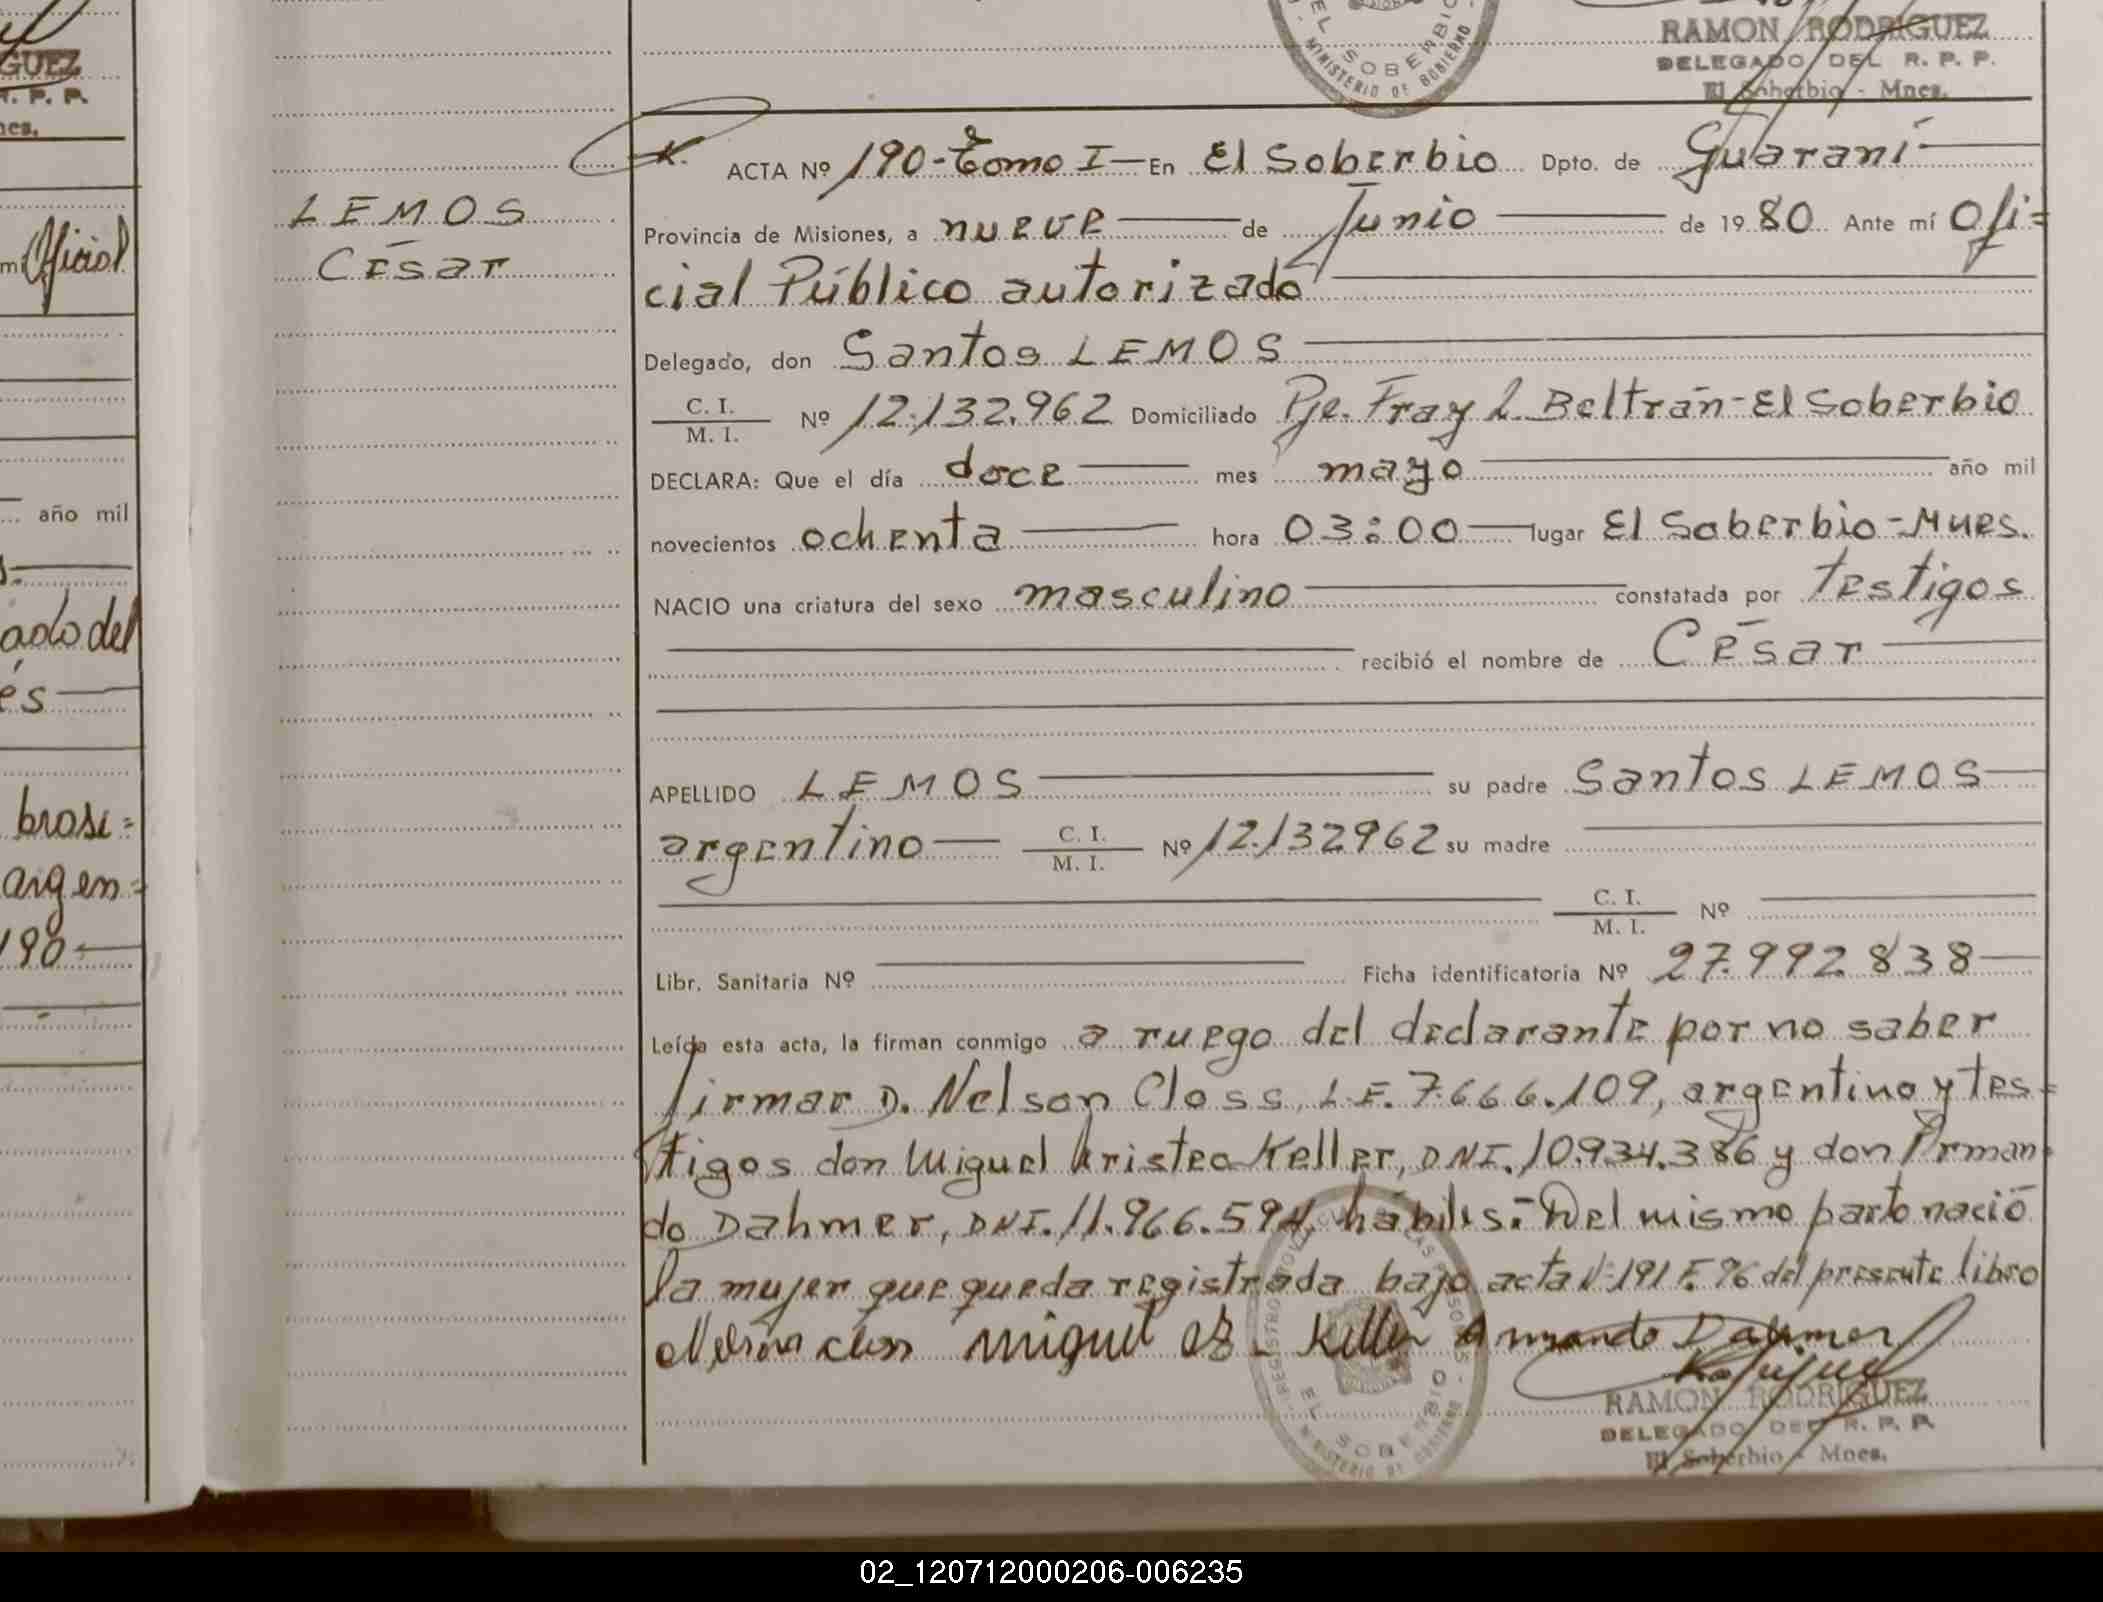 GUEZ
R. P. P.
nes.
m Oficial
año mil
ado del
és
brasi=
argen=
190
SOBERBIO
MINISTERIO DE GOBIERNO
RAMON RODRIGUEZ
DELEGADO DEL R. P. P.
El Soberbio - Mnes.
LEMOS
César
ACTA Nº 190-Tomo I- En El Soberbio Dpto. de Guaraní
Provincia de Misiones, a nueve de Junio de 1980 Ante mí Ofi=
cial Público autorizado
Delegado, don Santos LEMOS
C. I.
M. I. Nº 12.132.962 Domiciliado Pje. Fray L. Beltrán-El Soberbio
DECLARA: Que el día doce mes mayo año mil
novecientos ochenta hora 03:00 lugar El Soberbio-Mnes.
NACIO una criatura del sexo masculino constatada por testigos
recibió el nombre de César
APELLIDO LEMOS su padre Santos LEMOS
argentino C. I.
M. I. Nº 12.132962 su madre
C. I.
M. I. Nº
Libr. Sanitaria Nº Ficha identificatoria Nº 27.992.838
Leída esta acta, la firman conmigo a ruego del declarante por no saber
firmar D. Nelson Closs, L.E. 7.666.109, argentino y tes=
tigos don Miguel Aristeo Keller, DNI. 10.934.386 y don Arman=
do Dahmer, DNI. 11.966.594, hábiles.- Del mismo parto nació
la mujer que queda registrada bajo acta Nº 191 F. 96 del presente libro
Nelson Closs Miguel A. Keller Armando Dahmer
EL SOBERBIO
MINISTERIO DE GOBIERNO
RAMON RODRIGUEZ
DELEGADO DEL R. P. P.
El Soberbio - Mnes.
02_120712000206-006235